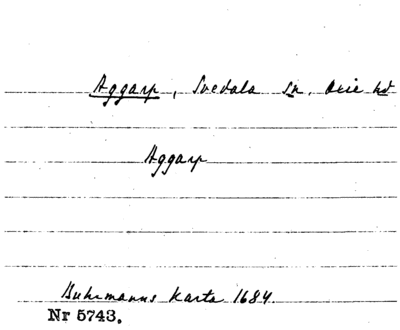 Aggarp, Svedala sn. Oxie hd
Aggarp
Buhrmanns Karta 1684.
Nr 5743.